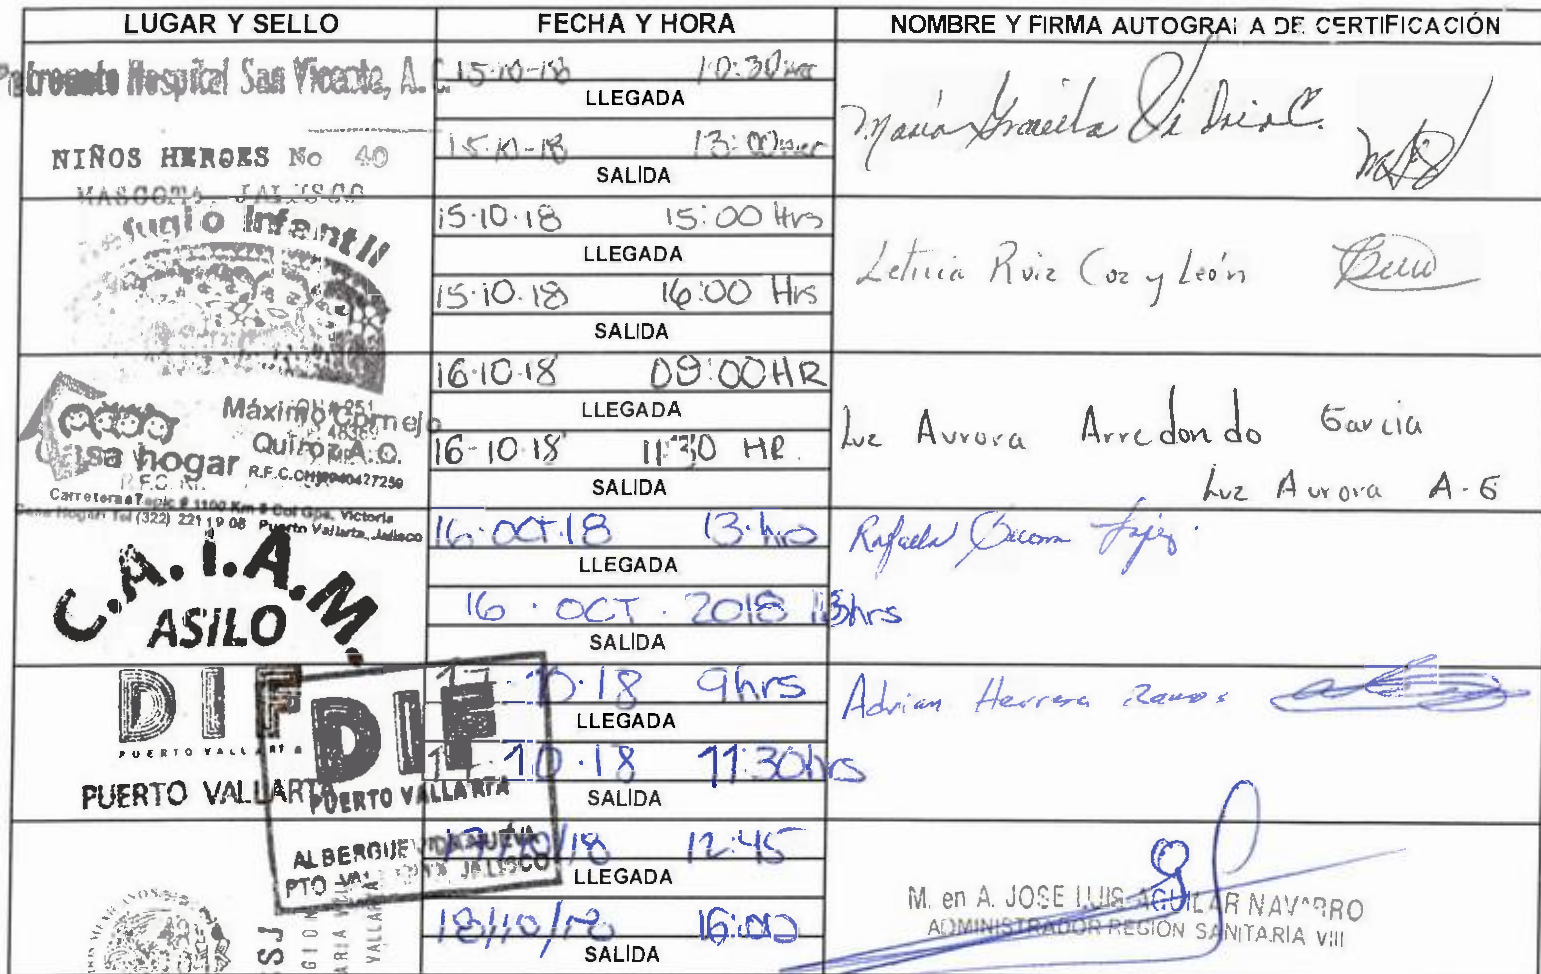 LUGAR Y SELLO FECHA Y HORA NOMBRE Y FIRMA AUTOGRAFA DE CERTIFICACIÓN
Patronato Hospital San Vicente, A. C.
NIÑOS HEROES No 40
MASCOTA, JALISCO
15-10-18 10:30 Hrs
LLEGADA
15-10-18 13:00 Hrs
SALIDA
María Graciela
Refugio Infantil
15·10·18 15:00 Hrs
LLEGADA
15·10·18 16:00 Hrs
SALIDA
Leticia Ruiz Coz y León
Máximo Cornejo
Quiroz A.C.
Casa hogar
R.F.C.
Carretera a Tepic # 1100 Km 8 Col Gpe. Victoria
Casa Hogar: Tel (322) 221 19 08 Puerto Vallarta, Jalisco
16·10·18 09:00 HR
LLEGADA
16-10-18 11:30 HR.
SALIDA
Luz Aurora Arredondo Garcia
Luz Aurora A-G
C.A.I.A.M.
ASILO
16·OCT·18 13·hrs
LLEGADA
16 · OCT · 2018
SALIDA
Rafaela
DIF
PUERTO VALLARTA
PUERTO VALLARTA
17·10·18 9hrs
LLEGADA
17·10·18 11:30hrs
SALIDA
Adrian Herrera Ramos
DIF
PUERTO VALLARTA
ALBERGUE VIDA NUEVA
PTO VALLARTA JALISCO
17/10/18 12:45
LLEGADA
18/10/18 16:00
SALIDA
M. en A. JOSE LUIS AGUILAR NAVARRO
ADMINISTRADOR REGIÓN SANITARIA VIII
SSJ